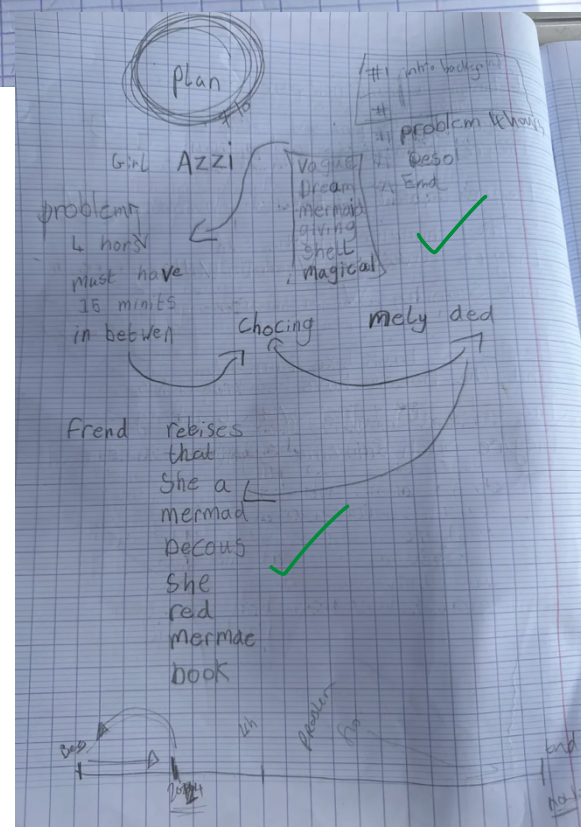 Plan
#1 intro
#
#1 problem 4 hours
Resol
End
Girl Azzi
Vague
Dream
mermaid
giving
Shell
magical
problem
4 hors
must have
15 minits
in betwen
Chocing
mely ded
Frend rebises
that
She a
mermad
becous
she
red
mermde
book
problem
End